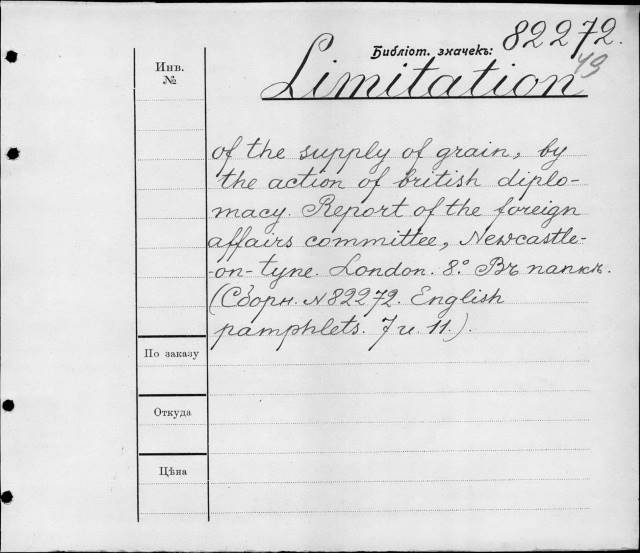 Библіот. значекъ: 82272.
49
Инв.
№
Limitation
of the supply of grain, by
the action of british diplo-
macy. Report of the foreign
affairs committee, Newcastle-
-on-tyne. London. 8.° Въ папкѣ.
(Сборн. № 82272. English
pamphlets. 7 и 11.).
По заказу
Откуда
Цѣна